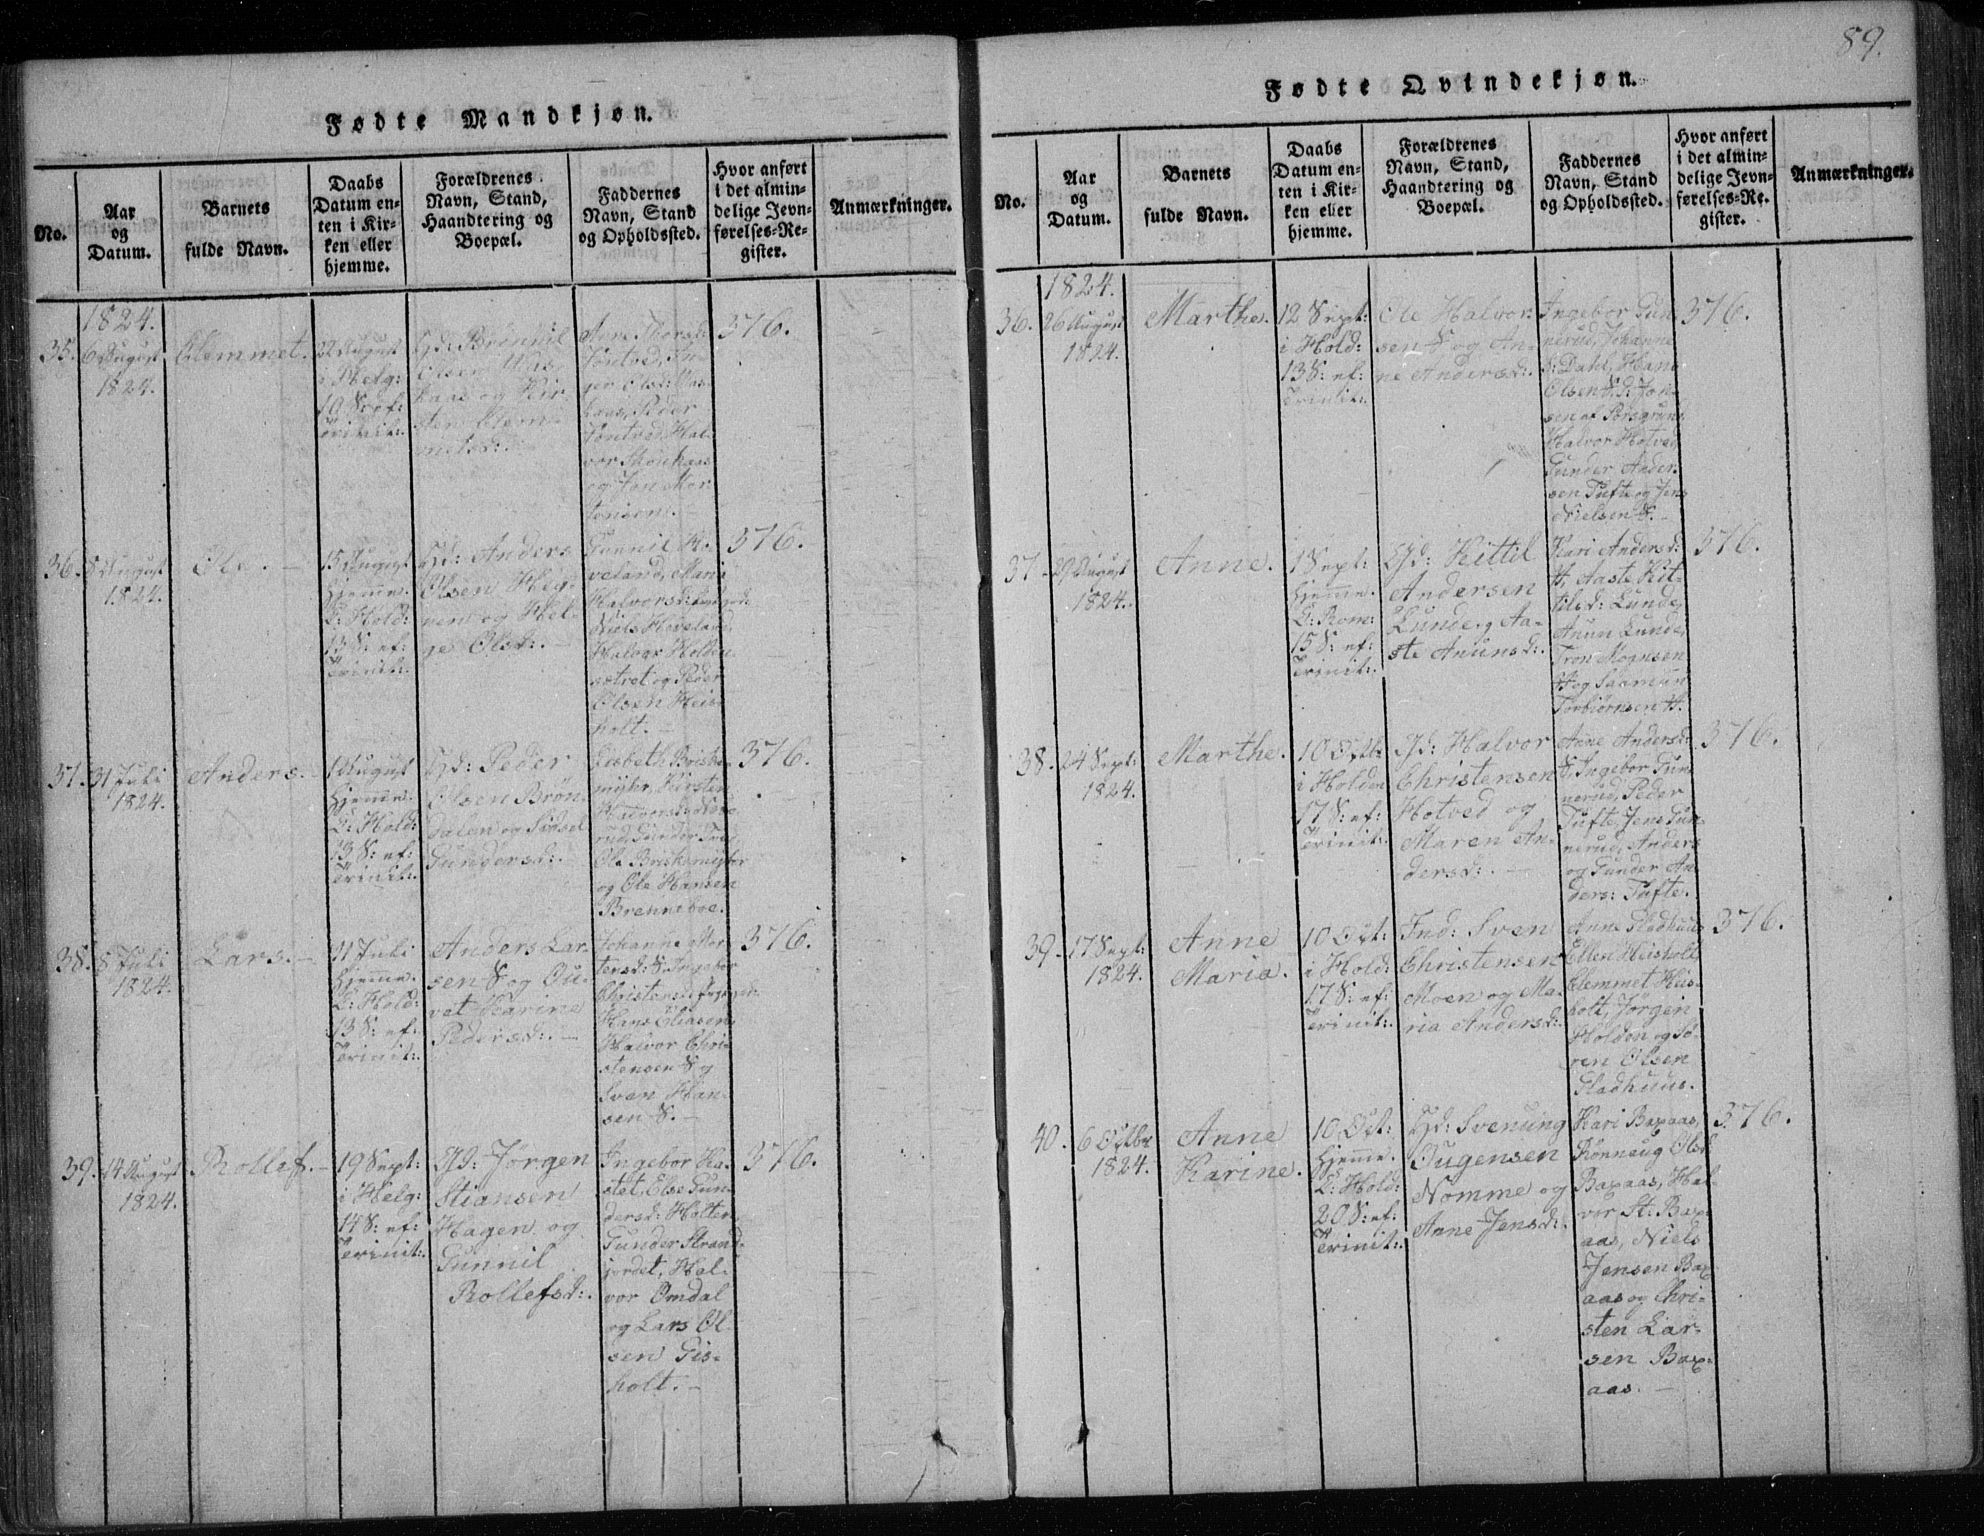 89.
Fødte Mandkjøn.
No.
Aar
og
Datum.
Barnets
fulde Navn.
Daabs
Datum en-
ten i Kir-
ken eller
hjemme.
Forældrenes
Navn, Stand,
Haandtering og
Boepæl.
Faddernes
Navn, Stand
og Opholdssted.
Hvor anført
i det almin-
delige Jevn-
førelses-Re-
gister.
Anmærkninger.
1824.
35.
6 August
1824.
Clemmet.
22 August
i Helg:
10 S: ef:
Trinit:.
Gd: Brønnil
Olsen Aas
kaas og Kir-
sten Clem-
metsd:.
Anne Thorsd:
Tontved, In-
ger Olsd: Aas
kaas, Peder
Tontved, Hal-
vor
og Jon Mor-
tensen.
376.
36.
8 August
1824.
Ole.
15 August
hjemme.
D: Hold:
13 S: ef:
Trinit:.
Gd: Anders
Olsen Heg-
nen og Hel-
ge Olsd:.
Gunnil Ho-
veland, Mari
Halvorsd:
Niels Hoveland,
Halvor Holden
sætret og Peder
Olsen Heis-
holt.
376.
37.
31 Juli
1824.
Anders.
1 August
hjemme.
D: Hold:
13 S: ef:
Trinit:.
Gd: Peder
Olsen Brøn-
dalen og Sidsel
Gundersd:.
Lisbeth Briske-
myhr, Kirsten
Halvorsd:
rud, Gunder
Ole Briskemyhr
og Ole Hansen
Brenneboe.
376.
38.
8 Juli
1824.
Lars.
11 Juli
hjemme.
D: Hold:
13 S: ef:
Trinit:.
Anders Lar-
sen S og Ou-
vet Karine
Pedersd:.
Johanne Mor-
tensd: S, Ingebor
Christensd:
Hans Eliasen,
Halvor Chri-
stensen S og
Sven Han-
sen S.
376.
39.
14 August
1824.
Rollef.
19 Sept:
i Helg:
14 S: ef:
Trinit:.
Gd: Jørgen
Stiansen
Hagen og
Gunnil
Rollefsd:.
Ingebor Ka-
stet, Else Gun-
dersd: Holten
Gunder Strand-
jordet, Hal-
vor Omdal
og Lars Ol-
sen Gis-
holt.
376.
Fødte Qvindekjøn.
No.
Aar
og
Datum.
Barnets
fulde Navn.
Daabs
Datum en-
ten i Kir-
ken eller
hjemme.
Forældrenes
Navn, Stand,
Haandtering og
Boepæl.
Faddernes
Navn, Stand
og Opholdssted.
Hvor anført
i det almin-
delige Jevn-
førelses-Re-
gister.
Anmærkninger.
1824.
36.
26 August
1824.
Marthe.
12 Sept:
i Hold:
13 S: ef:
Trinit:.
Ole Halvor-
sen S og An-
ne Andersd:.
Ingebor Gun-
nerud, Johanne
S: Dahl, Hans
Olsen S: d: Jon-
sen af Porsgrun,
Halvor Hotved
Gunder Ander-
sen Tufte og Jens
Nielsen S.
376.
37.
29 August
1824.
Anne.
1 Sept:
hjemme.
D: Rom:
15 S: ef:
Trinit:.
Gd: Kittil
Andersen
Lunde og Aa-
ste Anunsd:.
Kari Andersd:
H, Aaste Kit-
tilsd: Lunde,
Anun Lunde,
Tron Mognsen
H og Saamun
Torbiørnsen H.
376.
38.
24 Sept:
1824.
Marthe.
10 Octbr
i Holden
17 S: ef:
Trinit:.
Gd: Halvor
Christensen
Hotved og
Maren An-
dersd:.
Anne Andersd:
S, Ingebor Gun-
nerud, Peder
Tufte, Jens Gun-
nerud, Anders
og Gunder An-
ders: Tufte.
376.
39.
17 Sept:
1824.
Anne
Maria.
10 Oct:
i Hold:
17 S: ef:
Trinit:.
Ind: Sven
Christensen
Moen og Ma-
ria Andersd:.
Anne Fladhuus
Ellen Heisholt
Clemmet Heis-
holt, Jørgen
Holden og Sø-
ren Olsen
Fladhuus.
376.
40.
6 Octbr
1824.
Anne
Karine.
10 Oct:
hjemme.
D: Hold:
20 S: ef:
Trinit:.
Gd: Svenung
Ougensen
Nomme og
Anne Jensd:.
Kari Baxaas,
Rønnaug Olsd
Baxaas, Hal-
vor St: Bax-
aas, Niels
Jensen Bax
aas og Chri-
sten Lar-
sen Bax-
aas.
376.